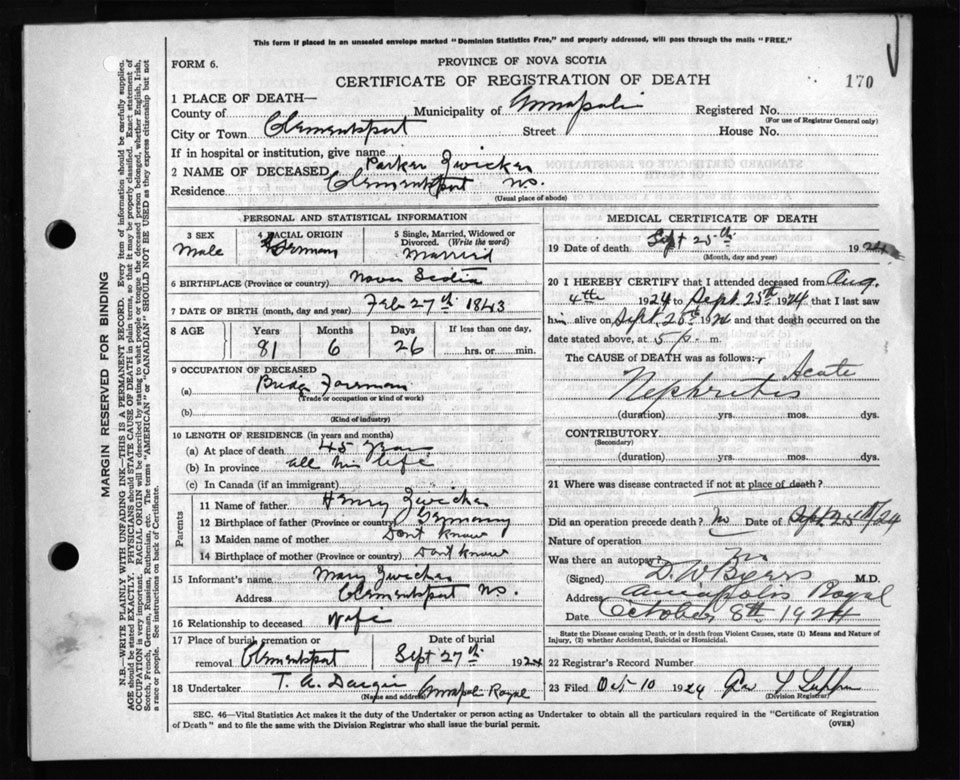 This form if placed in an unsealed envelope marked "Dominion Statistics Free," and properly addressed, will pass through the mails "FREE."
FORM 6.
PROVINCE OF NOVA SCOTIA
CERTIFICATE OF REGISTRATION OF DEATH
170
MARGIN RESERVED FOR BINDING
N.B.—WRITE PLAINLY WITH UNFADING INK—THIS IS A PERMANENT RECORD. Every item of information should be carefully supplied.
AGE should be stated EXACTLY. PHYSICIANS should STATE CAUSE OF DEATH in plain terms, so that it may be properly classified. Exact statement of
OCCUPATION is very important. RACIAL ORIGIN will be described by stating to what people or tongue the deceased person belonged, whether English, Irish,
Scotch, French, German, Russian, Ruthenian, etc. The terms "AMERICAN" or "CANADIAN" SHOULD NOT BE USED as they express citizenship but not
a race or people. See instructions on back of Certificate.
1 PLACE OF DEATH—
County of Municipality of Annapolis Registered No.
(For use of Registrar General only)
City or Town Clementsport Street House No.
If in hospital or institution, give name
2 NAME OF DECEASED Parker Zwicker
Residence Clementsport N.S.
(Usual place of abode)
PERSONAL AND STATISTICAL INFORMATION
3 SEX 4 RACIAL ORIGIN 5 Single, Married, Widowed or Divorced. (Write the word)
Male German Married
6 BIRTHPLACE (Province or country) Nova Scotia
7 DATE OF BIRTH (month, day and year) Feb 27th 1843
8 AGE Years Months Days If less than one day,
81 6 26 hrs. or min.
9 OCCUPATION OF DECEASED
(a) Bridge Foreman
(Trade or occupation or kind of work)
(b)
(Kind of industry)
10 LENGTH OF RESIDENCE (in years and months)
(a) At place of death 45
(b) In province all his life
(c) In Canada (if an immigrant)
Parents
11 Name of father Henry Zwicker
12 Birthplace of father (Province or country) Germany
13 Maiden name of mother Dont Know
14 Birthplace of mother (Province or country) Dont Know
15 Informant's name Mary Zwicker
Address Clementsport N.S.
16 Relationship to deceased Wife
17 Place of burial, cremation or removal Clementsport Date of burial Sept 27th 1924
18 Undertaker T. A. Dargie Annapolis Royal
(Name and address)
MEDICAL CERTIFICATE OF DEATH
19 Date of death Sept 25th 1924
(Month, day and year)
20 I HEREBY CERTIFY that I attended deceased from Aug.
4th 1924 to Sept. 25th 1924 that I last saw
him alive on Sept. 25th 1924 and that death occurred on
date stated above, at 5 p. m.
The CAUSE of DEATH was as follows:
Acute
Nephritis
(duration) yrs. mos. dys.
CONTRIBUTORY
(Secondary)
(duration) yrs. mos. dys.
21 Where was disease contracted if not at place of death?
Did an operation precede death? No Date of
Nature of operation
Was there an autopsy? No
(Signed) D. W Byers M.D.
Address Annapolis Royal
Date October 8th 1924
State the Disease causing Death, or in death from Violent Causes, state (1) Means and Nature of
Injury, (2) whether Accidental, Suicidal or Homicidal.
22 Registrar's Record Number
23 Filed Oct 10 1924
(Division Registrar)
SEC. 46—Vital Statistics Act makes it the duty of the Undertaker or person acting as Undertaker to obtain all the particulars required in the "Certificate of Registration
of Death" and to file the same with the Division Registrar who shall issue the burial permit. (OVER)